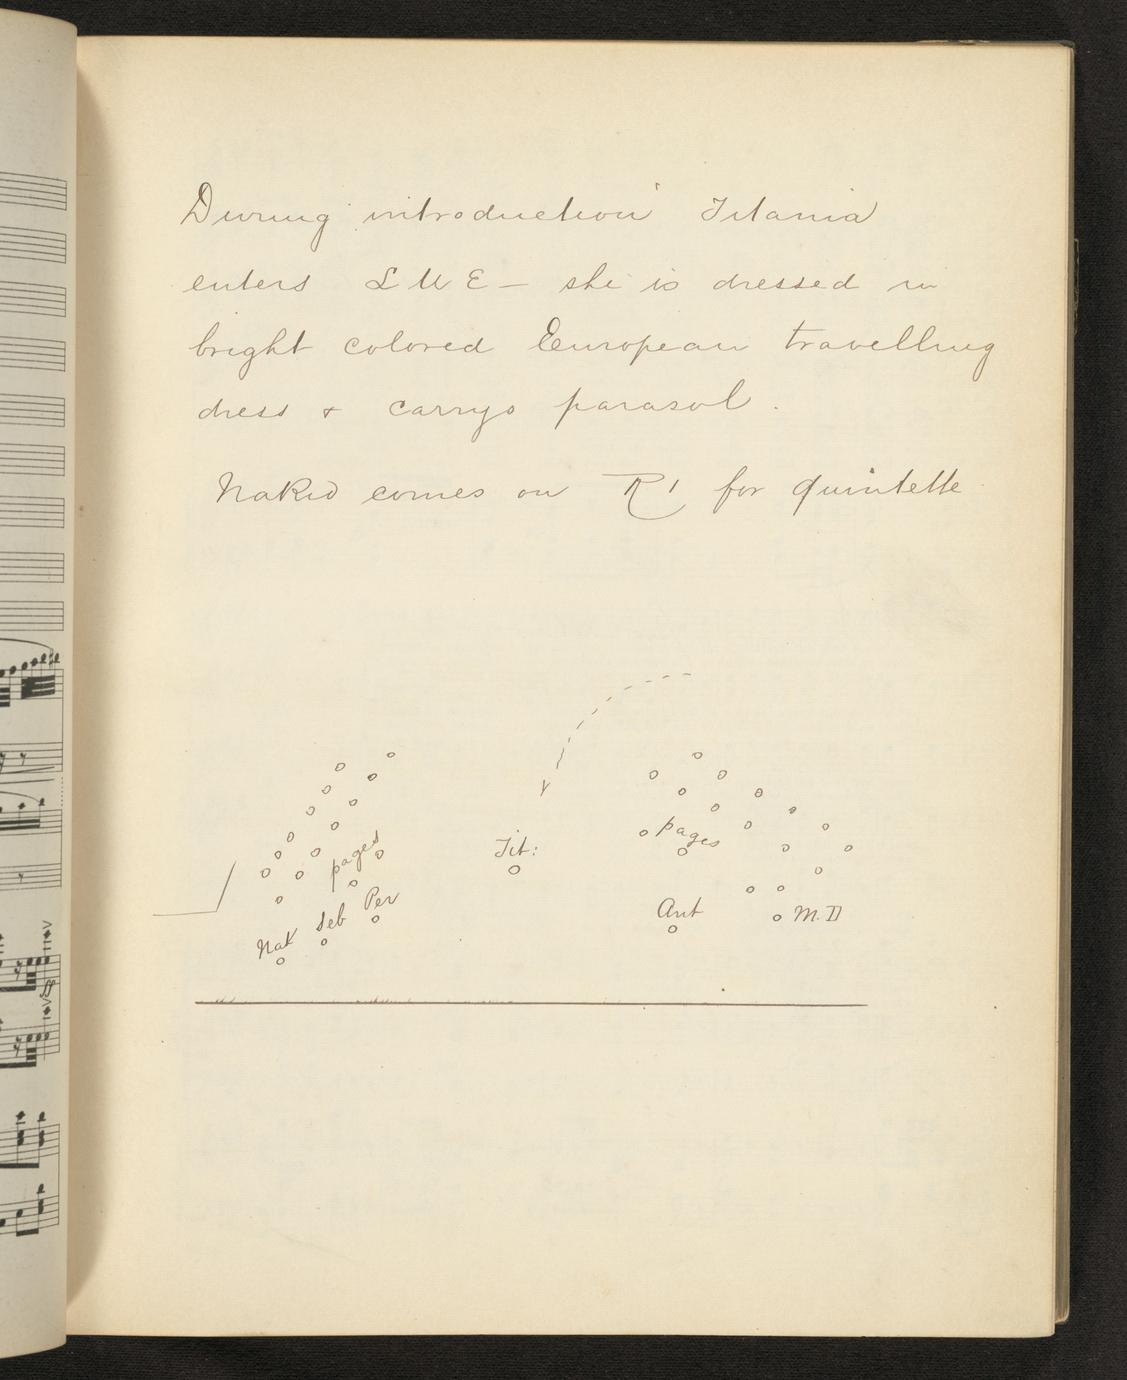 During introduction Titania
enters L U E – she is dressed in
bright colored European travelling
dress & carrys parasol.
Nakid comes on R 1 for quintette
pages
Tit:
pages
Per
Seb
Nak
Ant
M.D